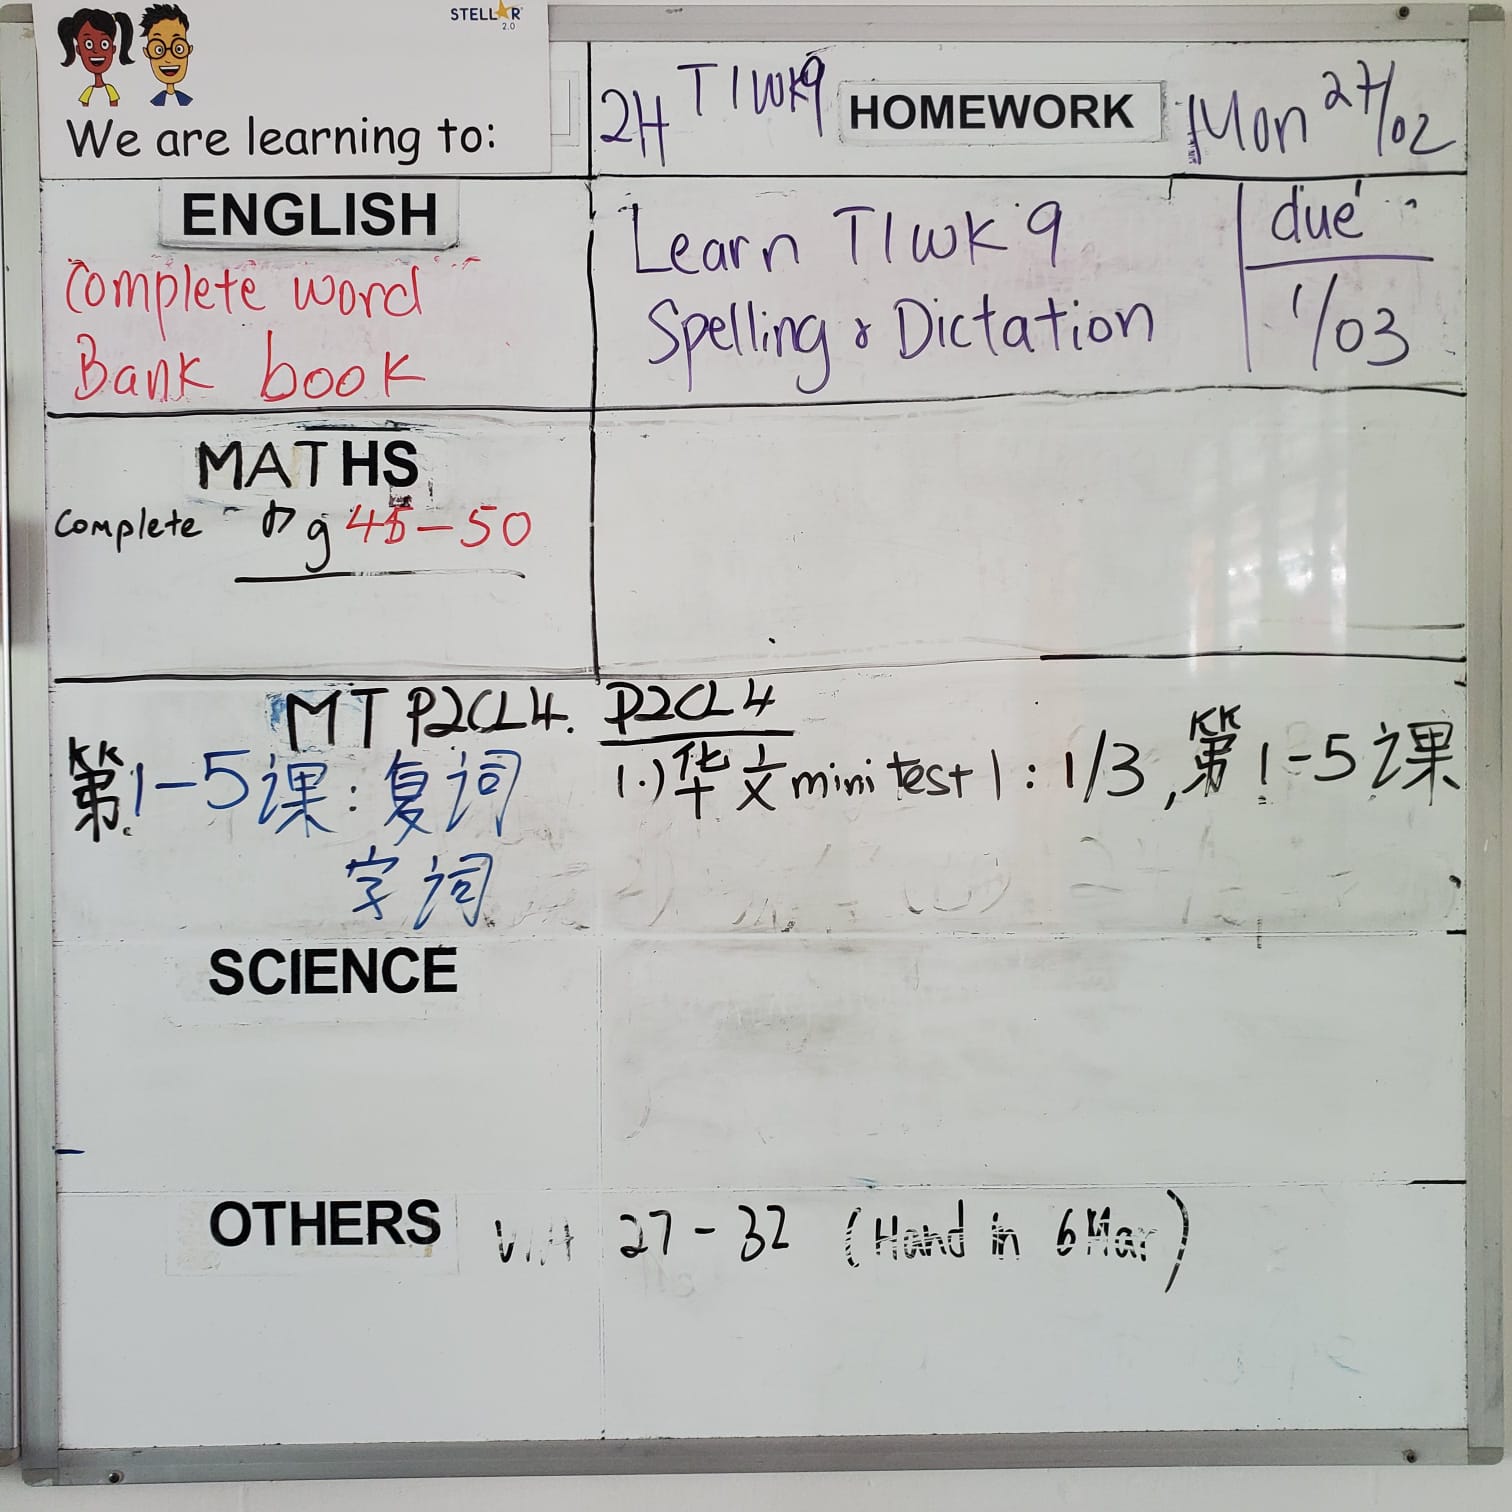 STELLAR 2.0
We are learning to:
2H T1WK9 HOMEWORK Mon 27/02
ENGLISH
Complete word
Bank book
Learn T1WK 9
Spelling & Dictation
due
1/03
MATHS
Complete pg 45-50
MT P2CL4.
第1-5课:复词
字词
P2CL4
1.)华文mini test 1: 1/3,第1-5课
SCIENCE
OTHERS
27-32 (Hand in 6 Mar)